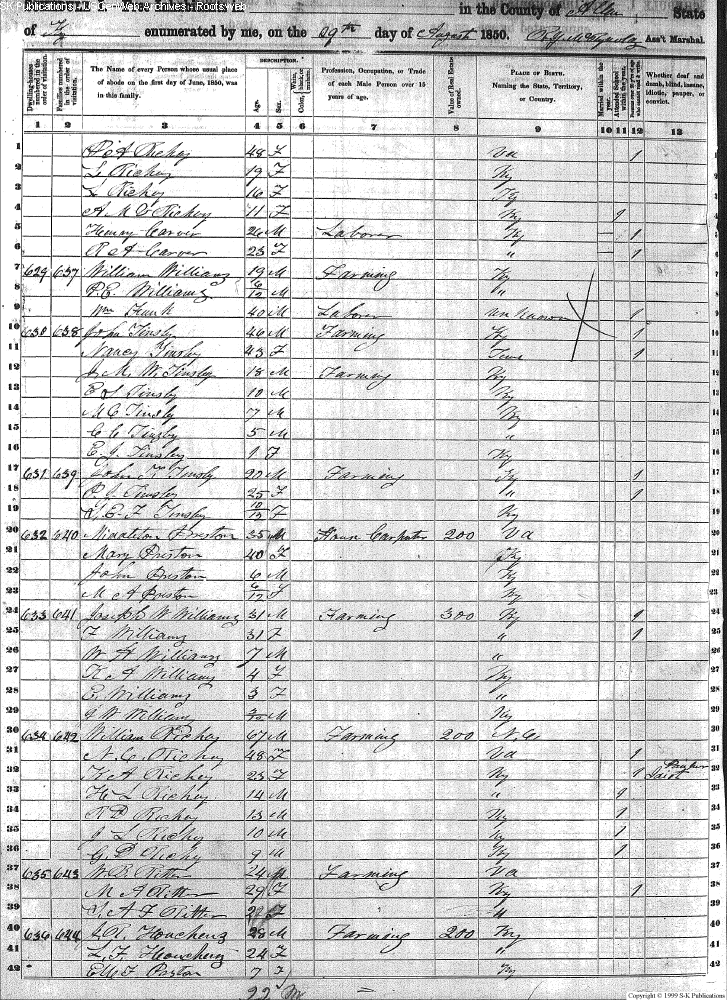 SK Publications - USGenWeb Archives - Rootsweb
in the County of Allen State
of Ky enumerated by me, on the 29th day of August 1850. Ass't Marshal.
DESCRIPTION.
Dwelling-houses numbered in the order of visitation.
Families numbered in the order of visitation.
The Name of every Person whose usual place of abode on the first day of June, 1850, was in this family.
Age.
Sex.
White, black, or mulatto. Color,
Profession, Occupation, or Trade of each Male Person over 15 years of age.
Value of Real Estate owned.
PLACE OF BIRTH. Naming the State, Territory, or Country.
Married within the year.
Attended School within the year.
Whether deaf and dumb, blind, insane, idiotic, pauper, or convict.
1 2 3 4 5 6 7 8 9 10 11 12 13
1 Richey 48 F Va 1
2 L Richey 19 F Ky 2
3 L Richey 16 F Ky 3
4 A M C Richey 11 F Ky 1
5 Henry Carver 26 M Laborer Ky 1
6 R A Carver 23 F " 1
7 629 637 William Williams 19 M Farming Ky
8 P. E. Williams 6/12 M "
9 Wm 40 M Laborer unknown 1
10 630 638 John Tinsly 46 M Farming Ky 1
11 Nancy Tinsly 43 F Tenn 1
12 J. M. W. Tinsly 18 M Farming Ky
13 E S Tinsly 10 M Ky
14 M C Tinsly 7 M Ky
15 C C Tinsly 5 M "
16 E. J. Tinsley 1 F Ky
17 631 639 John Tinsly 27 M Farming Ky 1
18 P. J. Tinsly 25 F " 1
19 E. F Tinsly 10/12 F Ky
20 632 640 Middleton Preston 35 M House Carpenter 200 Va
21 Mary Preston 40 F Ky
22 John Preston 6 M Ky
23 M A Preston 6/12 F Ky
24 633 641 Joseph W Williams 31 M Farming 300 Ky 1
25 F Williams 31 F " 1
26 W H Williams 7 M "
27 K A Williams 4 F Ky
28 E. Williams 3 F "
29 J W Williams M Ky
30 634 642 William Richey 67 M Farming 200 N. C.
31 N. C. Richey 48 F Va 1
32 K A Richey 23 F Ky 1 Pauper Idiot
33 H L Richey 14 M " 1
34 R D Richey 13 M Ky 1
35 J L Richey 10 M Ky 1
36 G. D Richy 9 M Ky 1
37 635 643 W. B. Ritter 24 M Farming Va
38 M A Ritter 29 F Ky 1
39 A F Ritter F "
40 636 644 R Houcheng 28 M Farming 200 Ky
41 L. F. Houcheng 24 F "
42 F 7 F Ky
22 M
Copyright © 1999 S-K Publications